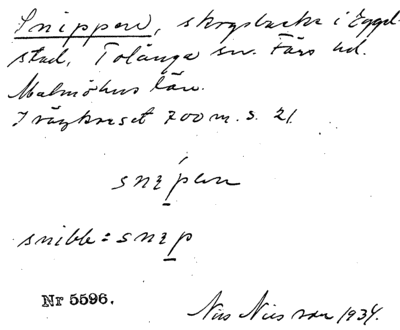 Snippen, skogsbacke i Eggel-
stad, Tolånga sn. Färs hd.
Malmöhus län.
I vägkorset 700 m. s. 21
snipen
snibb = snip
Nr 5596.
Nils Nilsson 1934.